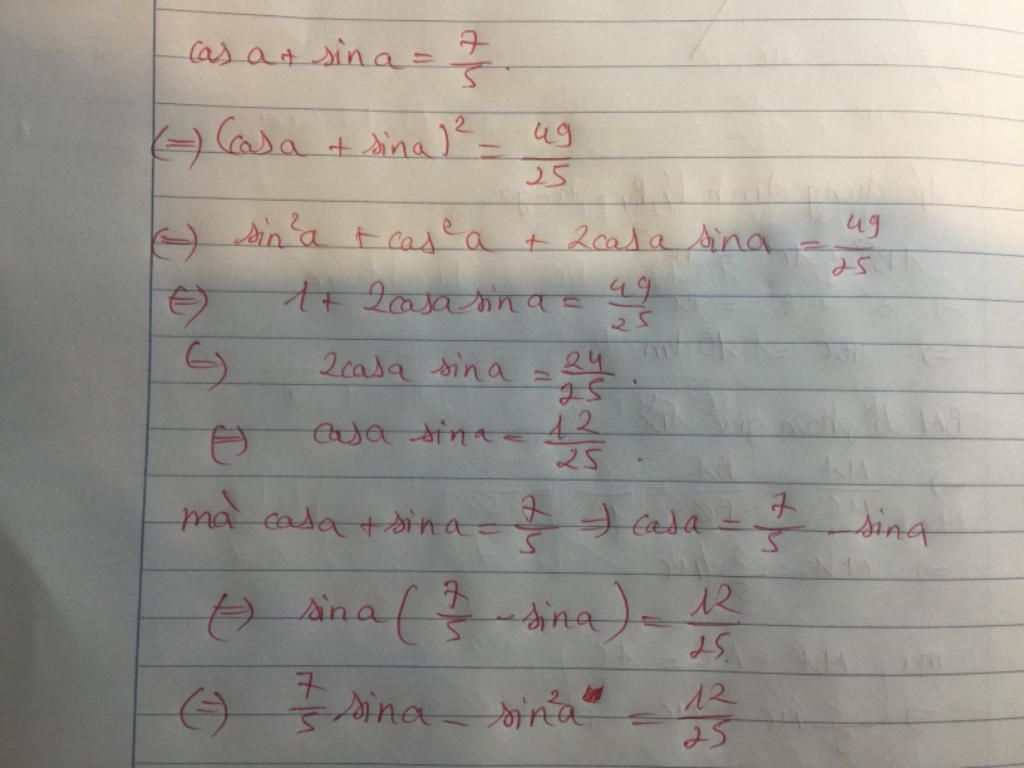 cos a + sin a = 7/5.
(=) (cos a + sin a)² = 49/25
(=) sin²a + cos²a + 2cosa sina = 49/25
(=) 1 + 2cosa sin a = 49/25
(=) 2cosa sina = 24/25.
(=) cosa sina = 12/25.
mà cosa + sina = 7/5 => cosa = 7/5 - sina
(=) sina (7/5 - sina) = 12/25.
(=) 7/5 sina - sin²a = 12/25